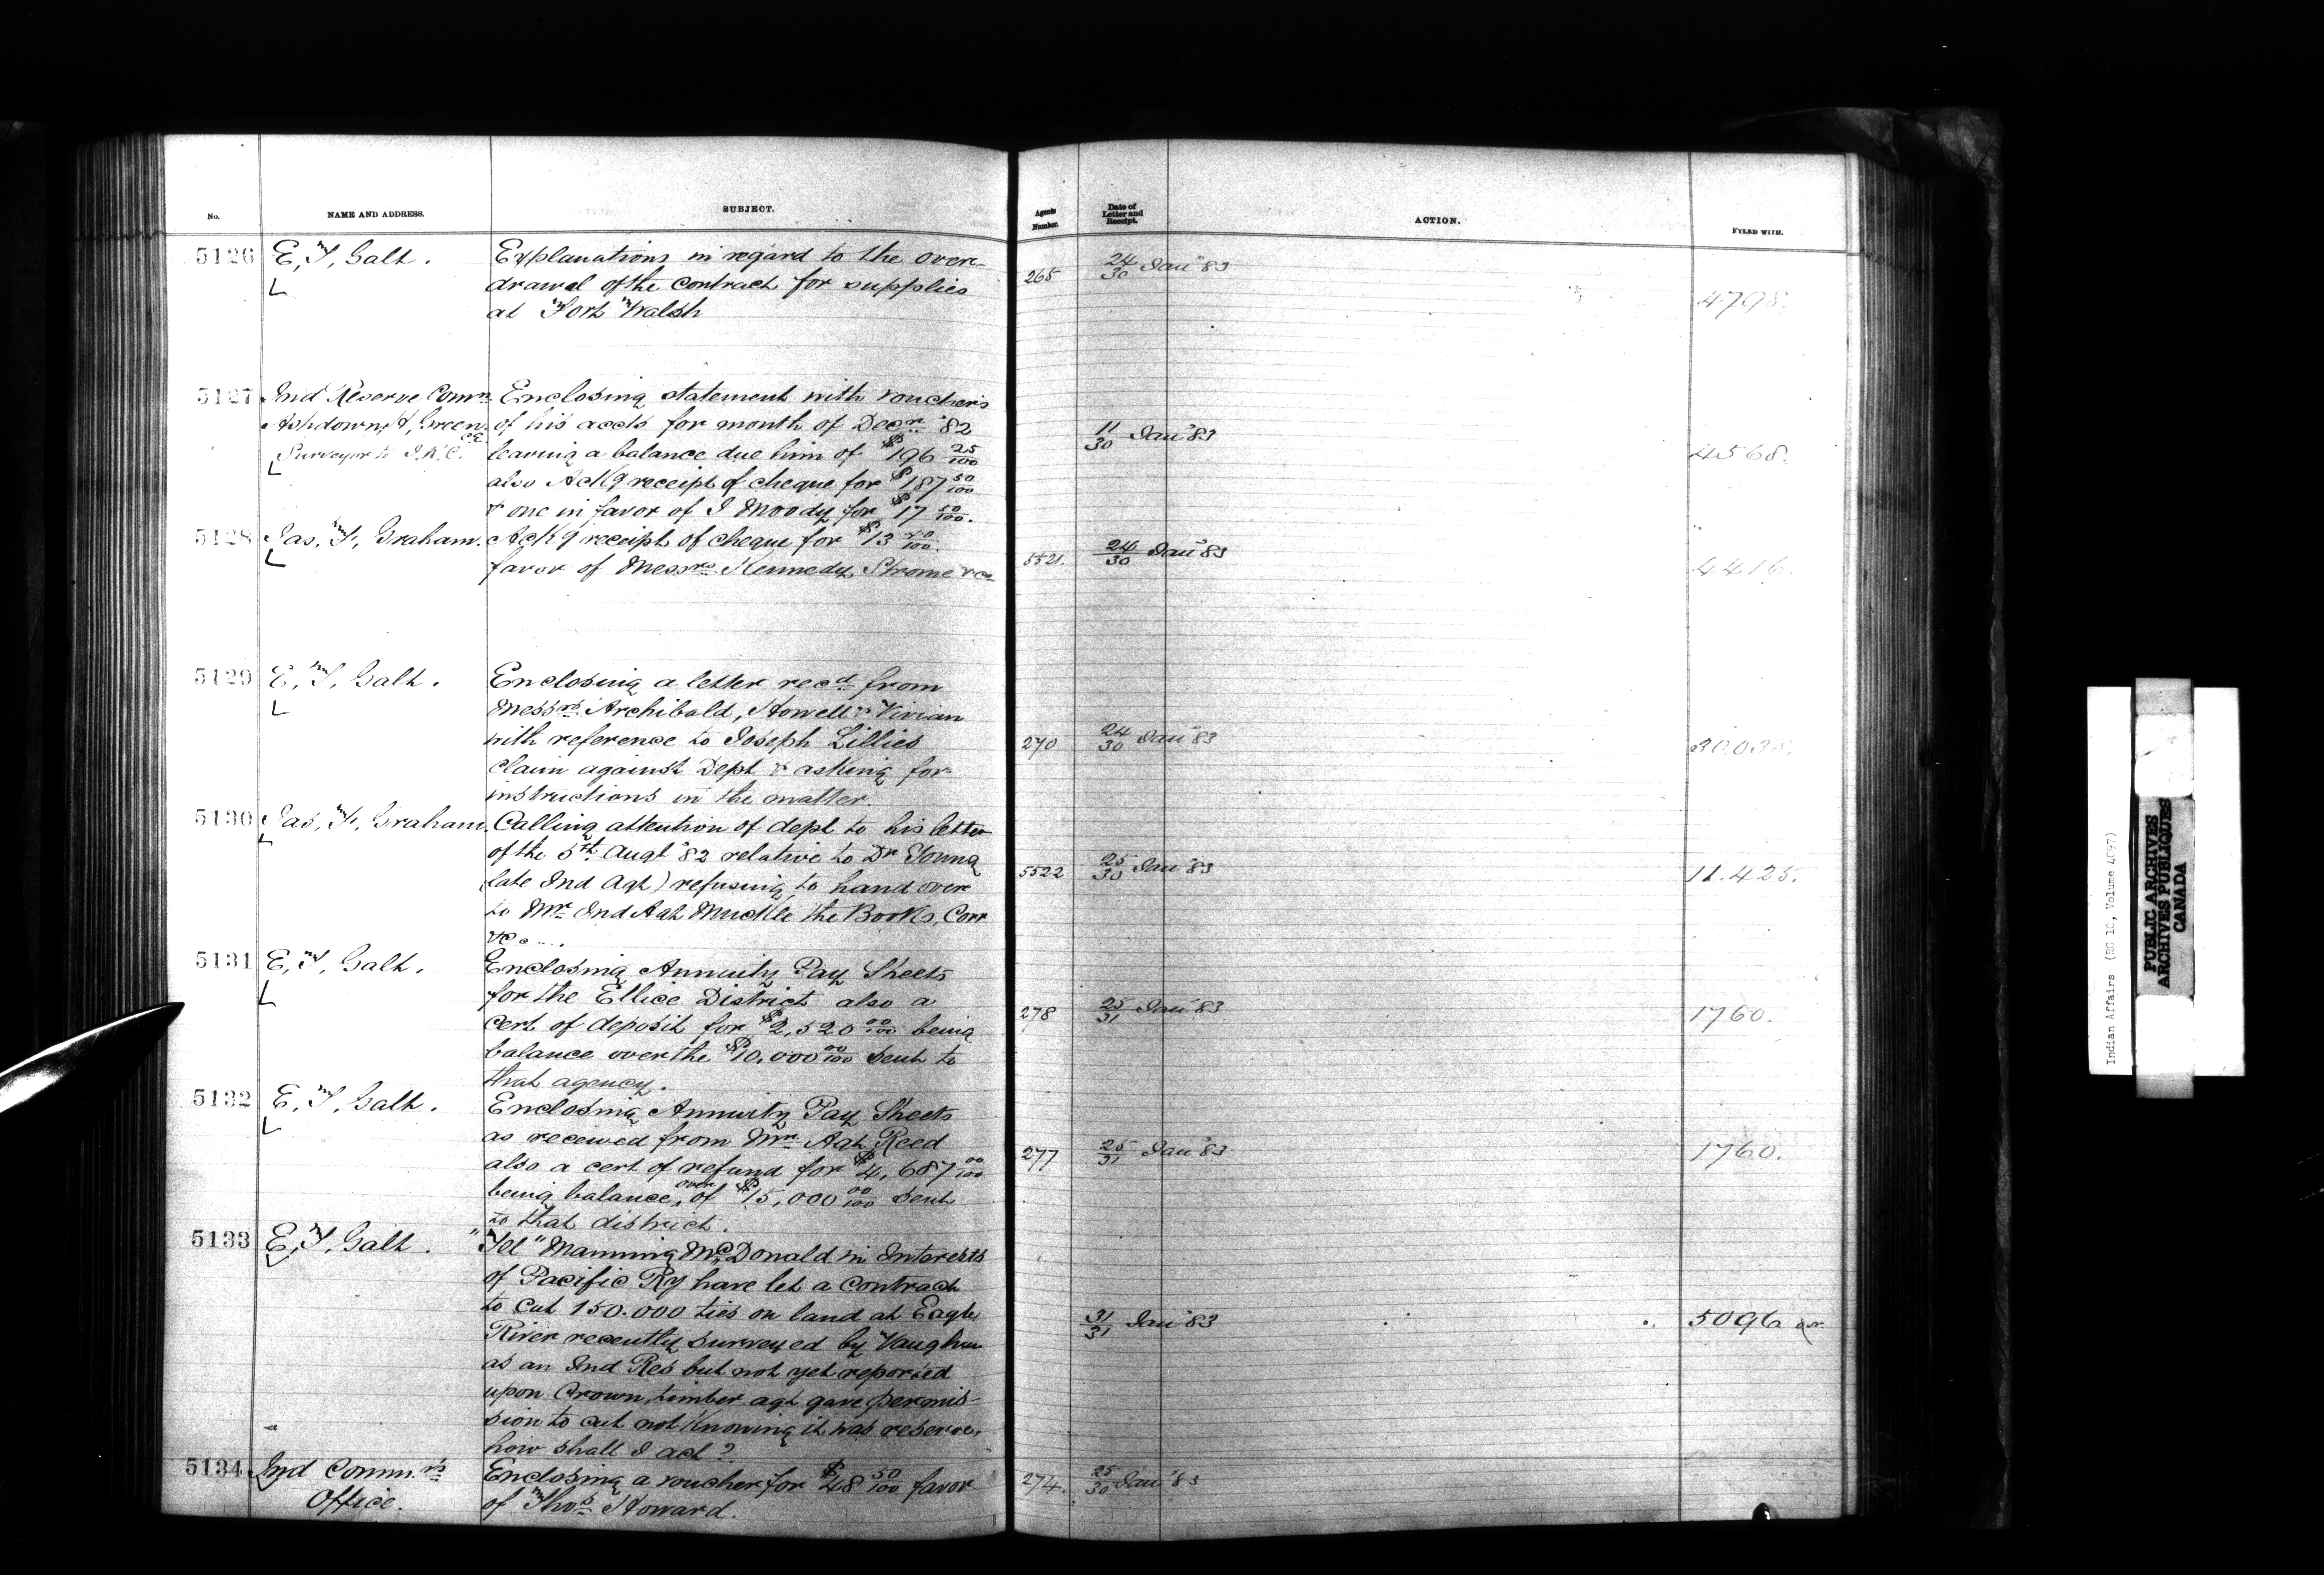 No. NAME AND ADDRESS. SUBJECT. Agents Number. Date of Letter and Receipt. ACTION. FYLED WITH.
5126 E, T, Galt. Explanations in regard to the over-
drawal of the contract for supplies 265 24/30 Jan'y 83
at Fort Walsh 4798.
5127 Ind Reserve Commn Enclosing statement with vouchers
Ashdown, H, Green, C.E. of his accts for month of Decr '82 11/30 Jan'y 83
Surveyor to I.R.C. leaving a balance due him of $196 25/100 4568.
also Ackg receipt of cheque for $187 50/100
& one in favor of I Moody for $17 50/100.
5128 Jas, F, Graham. Ackg receipt of cheque for $13 /100. 24/30 Jan'y 83
favor of Messrs. Kennedy, Strome & Co 5521. 4416.
5129 E, T, Galt. Enclosing a letter recd from
Messrs. Archibald, Howell & Vivian
with reference to Joseph Lillies 270 24/30 Jan'y 83 30.038.
claim against Dept & asking for
instructions in the matter.
5130 Jas, F, Graham. Calling attention of dept to his letter
of the 5th Augt '82 relative to Dr Young
late Ind Agt) refusing to hand over 5522 25/30 Jan'y 83 11.425.
to Mr Ind Agt Muckle the Books, Corr
&c...
5131 E, T, Galt. Enclosing Annuity Pay Sheets
for the Ellice District also a
cert of deposit for $2,520 00/100 being 278 25/31 Jan'y 83 1760.
balance over the $10,000 00/100 sent to
that agency.
5132 E, T, Galt. Enclosing Annuity Pay Sheets
as received from Mr Agt Reed
also a cert of refund for $4,687 00/100 277 25/31 Jan'y 83 1760.
being balance over of $15,000 00/100 sent
to that district.
5133 E, T, Galt. "Tel" Manning McDonald in Interests
of Pacific Ry have let a contract
to cut 150.000 ties on land at Eagle 31/31 Jan'y 83 5096
River recently surveyed by Vaughan
as an Ind Res but not yet reported
upon Crown, timber agt gave permis-
sion to cut not knowing it was reserve.
how shall I act?
5134 Ind Comm.rs Enclosing a voucher for $48 50/100 favor 274. 25/30 Jan'y 83
Office. of Thos Howard.
Indian Affairs (RG 10, Volume 4097)
PUBLIC ARCHIVES
ARCHIVES PUBLIQUES
CANADA